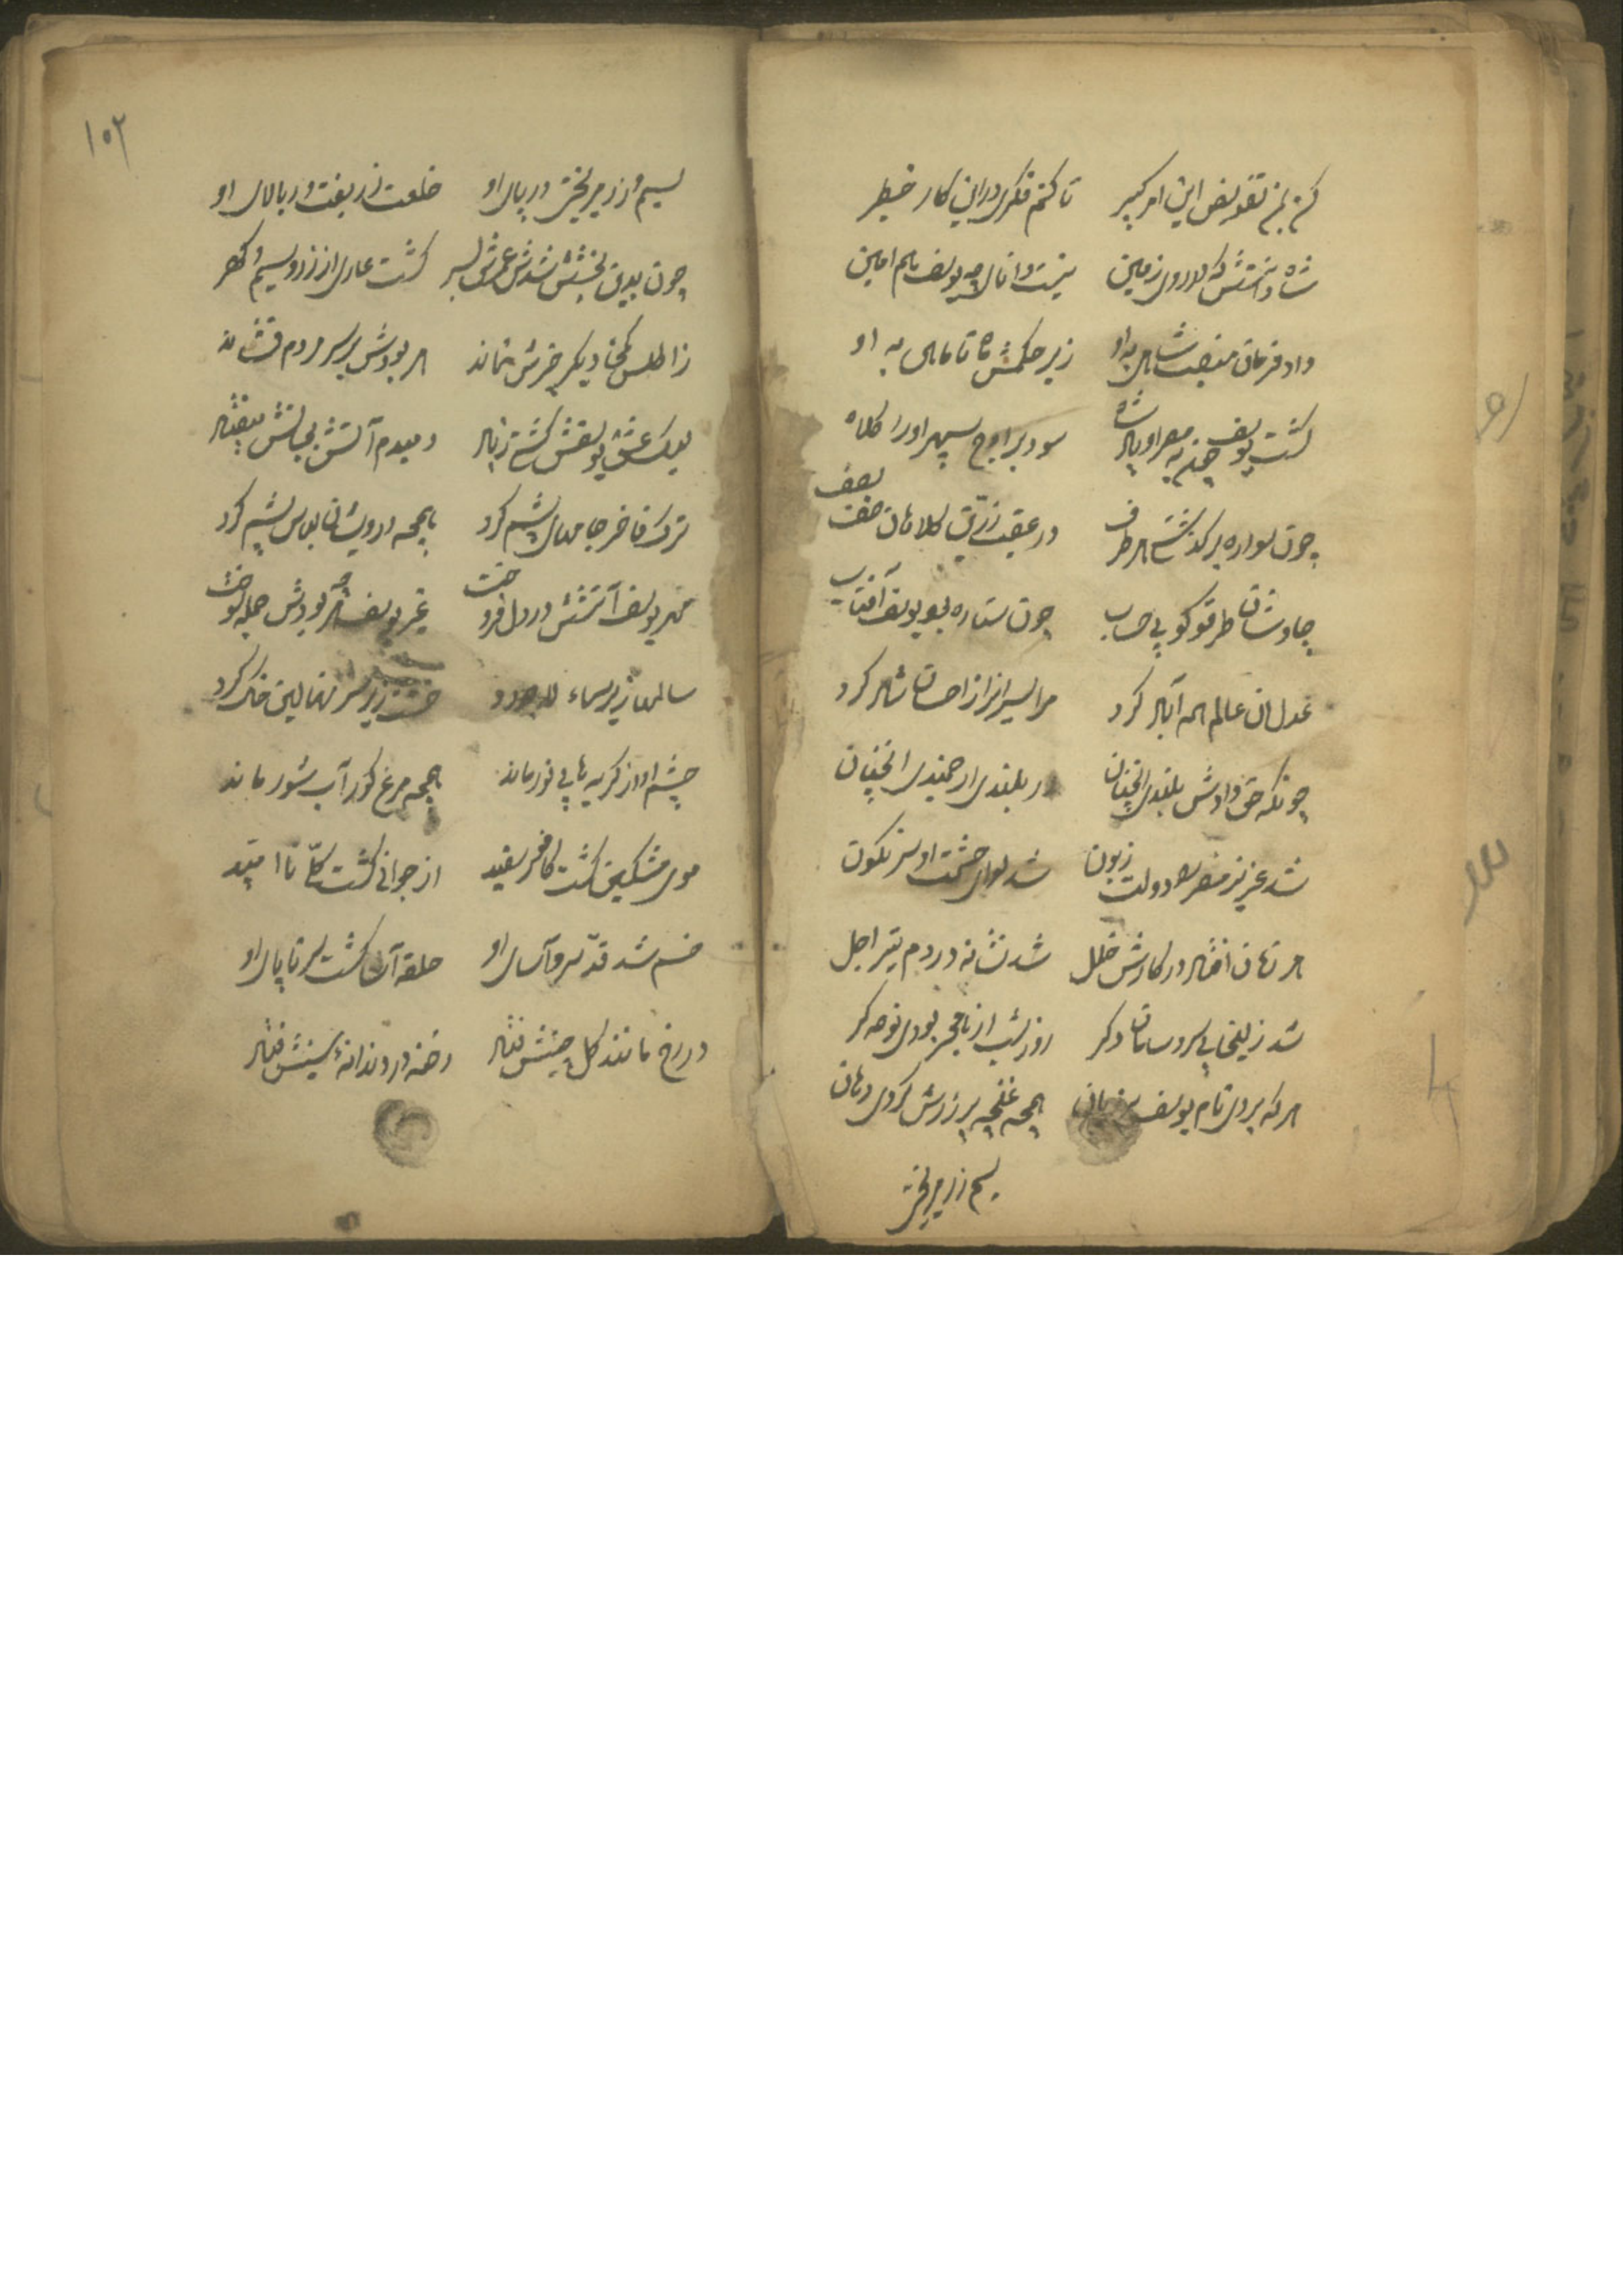 کن بمن تفویض این امر کبیر تا کنم فکری در این کار خطیر
شاه دانستش که در روی زمین نیست دانای چو یوسف هم امین
داد فرمان منصب شاهی به او زیر حکمش ماه تا ماهی به او
گشت یوسف چند به مصر او پادشاه سود بر اوج سپهر او را کلاه
چون سواره برگذشتی هر طرف در عقب زرین کلاهان صف بصف
چاوشان طرقو گو بی حساب چون ستاره بود یوسف آفتاب
عدل ان عالم همه آباد کرد مر اسیران را ز احسان شاد کرد
چونکه حق دادش بلندی آنچنان در بلندی ارجمندی آنچنان
شد عزیز مصر دولت زبون شد لوای حشمت او سرنگون
هر زمان افتاد در کارش خلل شد نشانه در دم تیر اجل
شد زلیخا بی سر و سامان دگر روز شب از هجر بودی نوحه گر
هر که بردی نام یوسف بر زبان همچه غنچه پر زرش کردی دهان
سیم زر میریخت
۱۰۲
سیم و زر میریخت در پای او خلعت زربفت در بالای او
چون بدین بخشش شدش عمرش بسر گشت عاری از زر و سیم و گهر
ز اطلس کمخا دیگر چیزش نماند هر بودش بر سر مردم فشاند
لیک عشق یوسفش گشته زیاد دمبدم آتش بجانش میفتاد
ترک فاخر جامهای پشم کرد همچه درویشان لباس پشم کرد
مهر یوسف آتشش در دل فروخت غیر یوسف هر چه بودش جمله سوخت
سالها زیر سماء لاجورد خشت زیر سر نهالین خاک کرد
چشم او از گریه ها بی نور ماند همچه مرغ کور آب شور ماند
موی مشکین گشت کافور سفید از جوانی گشت کلا نا امید
خم شد قد سرو آسای او حلقه آسا گشت سر تا پای او
در رخ مانند گل چینش فتاد رخنه در دندانهٔ سینش فتاد